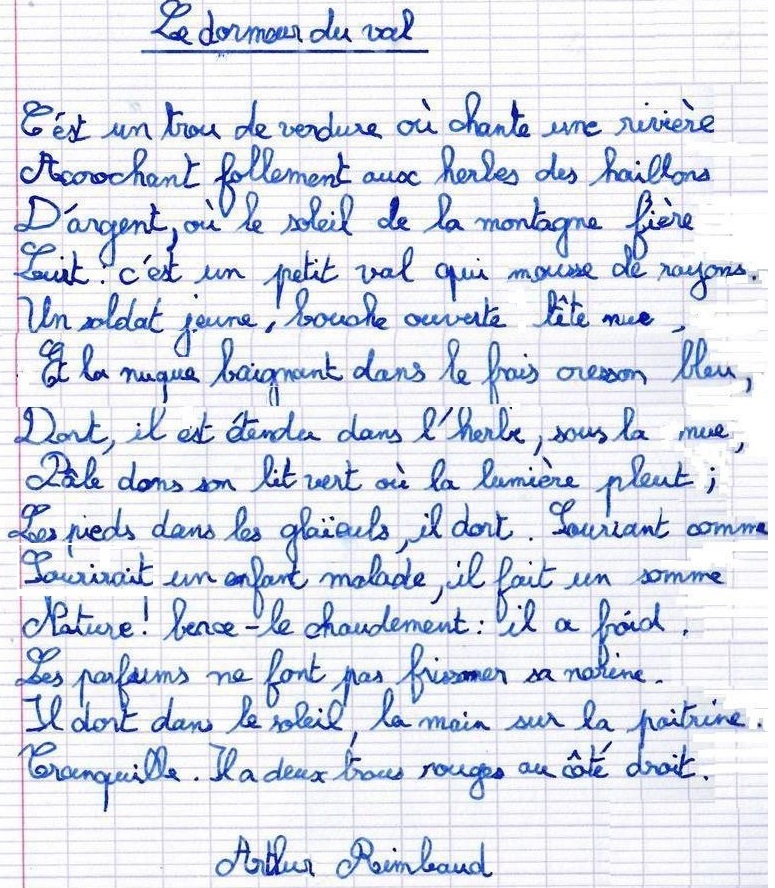 Le dormeur du val
C'est un trou de verdure où chante une rivière
Accrochant follement aux herbes des haillons
D'argent, où le soleil de la montagne fière
Luit : c'est un petit val qui mousse de rayons.
Un soldat jeune, bouche ouverte tête nue,
Et la nuque baignant dans le frais cresson bleu,
Dort, il est étendu dans l'herbe, sous la nue,
Pâle dans son lit vert où la lumière pleut ;
Les pieds dans les glaïeuls, il dort. Souriant comme
Sourirait un enfant malade, il fait un somme
Nature ! berce-le chaudement : il a froid.
Les parfums ne font pas frissonner sa narine.
Il dort dans le soleil, la main sur la poitrine.
Tranquille. Il a deux trous rouges au côté droit.
Arthur Rimbaud